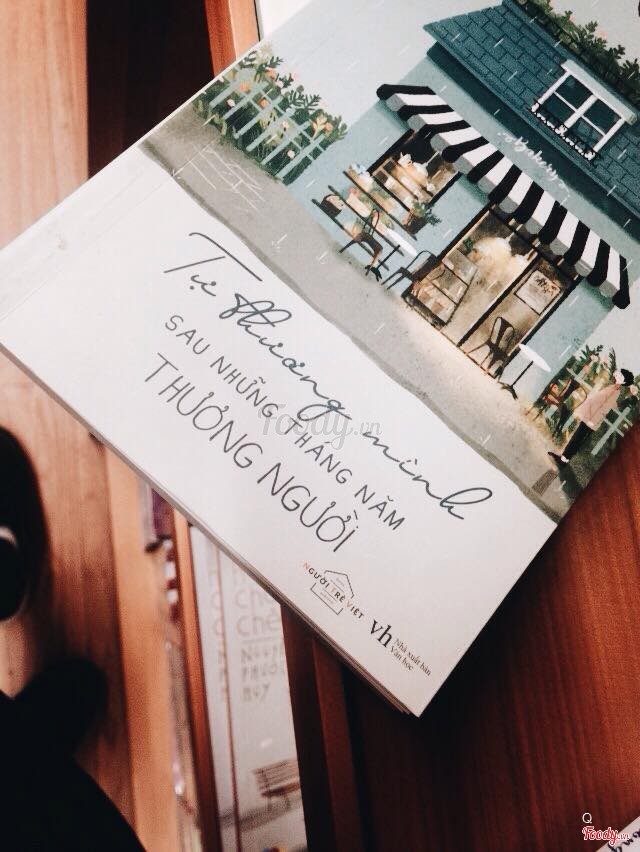 Bakery
Tự thương mình
SAU NHỮNG THÁNG NĂM
THƯƠNG NGƯỜI
NGƯỜI TRẺ VIỆT
vh
Nhà xuất bản
Văn học
Foody.vn
Q
Foody.vn